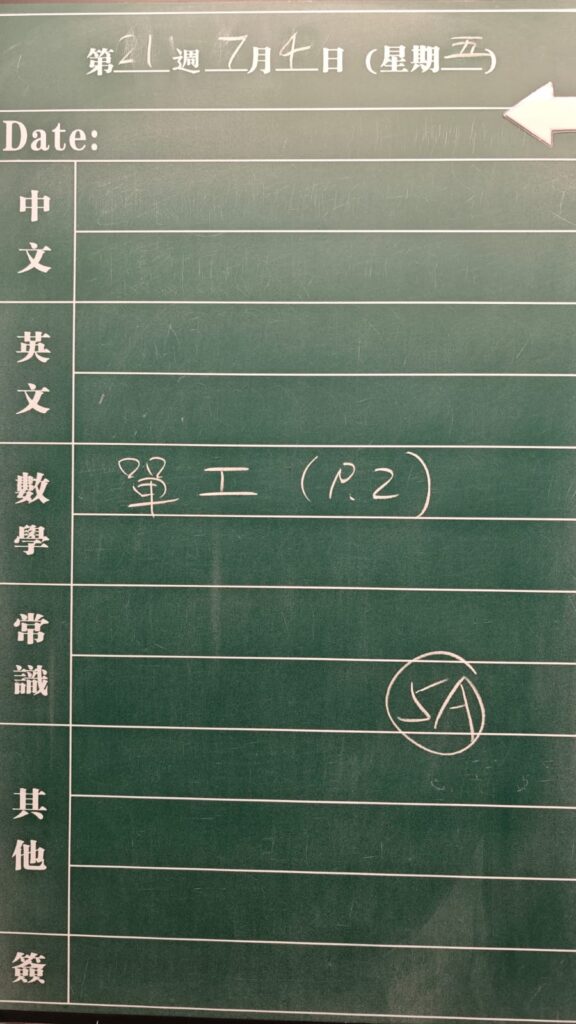 第21週 7月4日 (星期五)
Date:
中文
英文
數學 單工 (P.2)
常識
5A
其他
簽